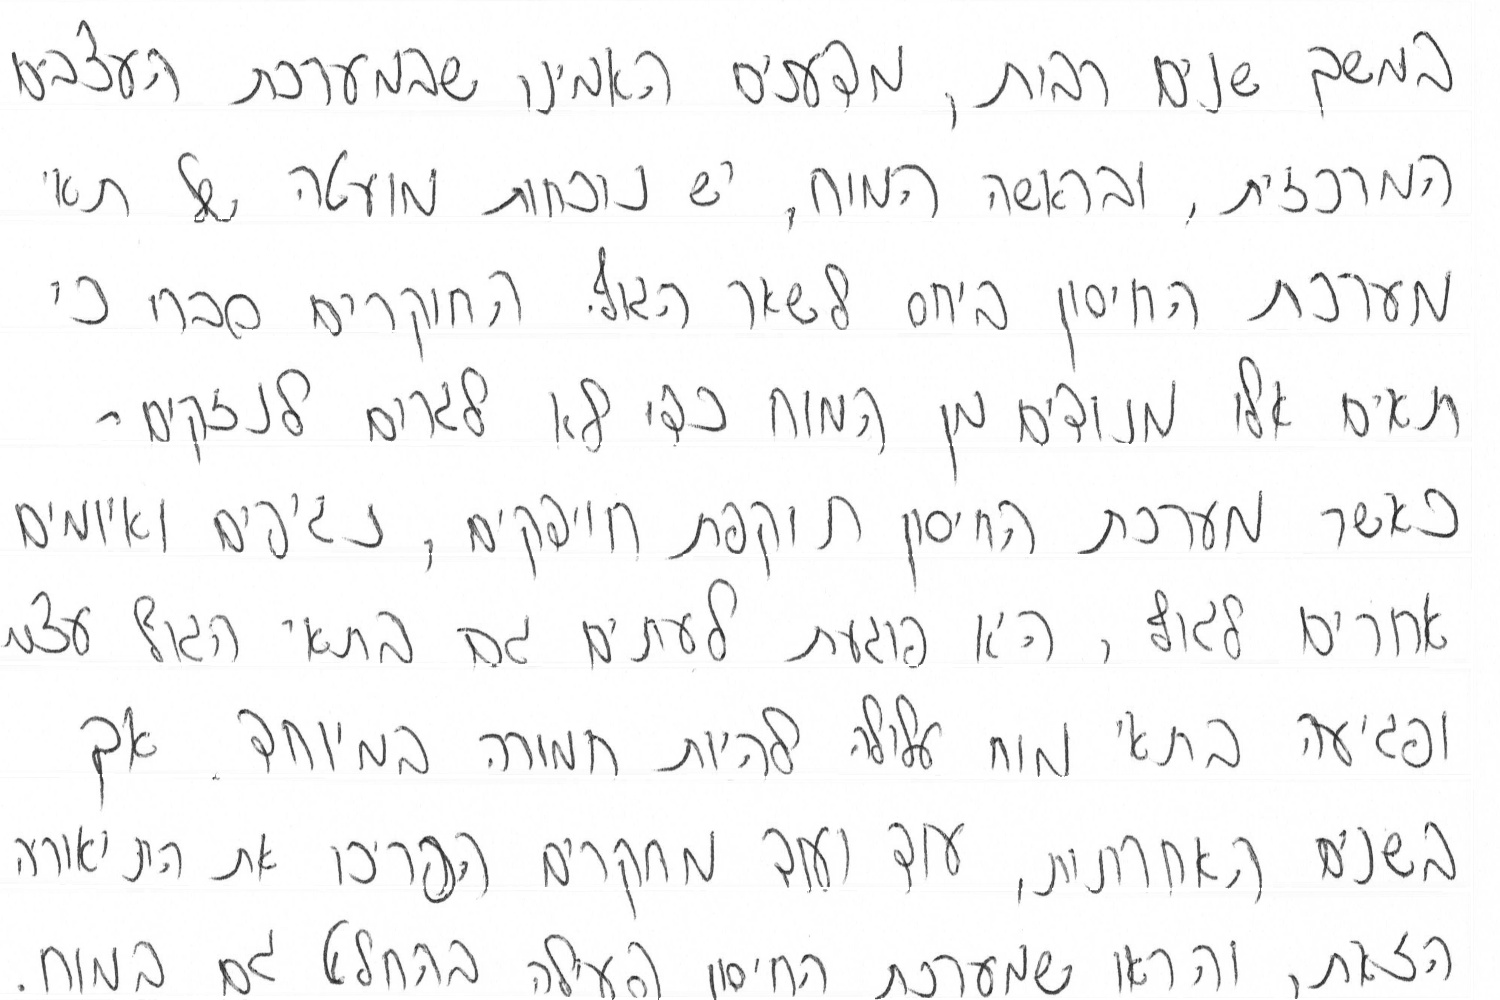 במשך שנים רבות, מדענים האמינו שבמערכת העצבים
המרכזית, ובראשה המוח, יש נוכחות מועטה של תאי
מערכת החיסון ביחס לשאר הגוף. החוקרים סברו כי
תאים אלו מנודים מן המוח כדי לא לגרום לנזקים -
כאשר מערכת החיסון תוקפת חיידקים, נגיפים ואיומים
אחרים לגוף, היא פוגעת לעתים גם בתאי הגוף עצמו
ופגיעה בתאי מוח עלולה להיות חמורה במיוחד. אך
בשנים האחרונות, עוד ועוד מחקרים הפריכו את התיאוריה
הזאת, והראו שמערכת החיסון פעילה בהחלט גם במוח.